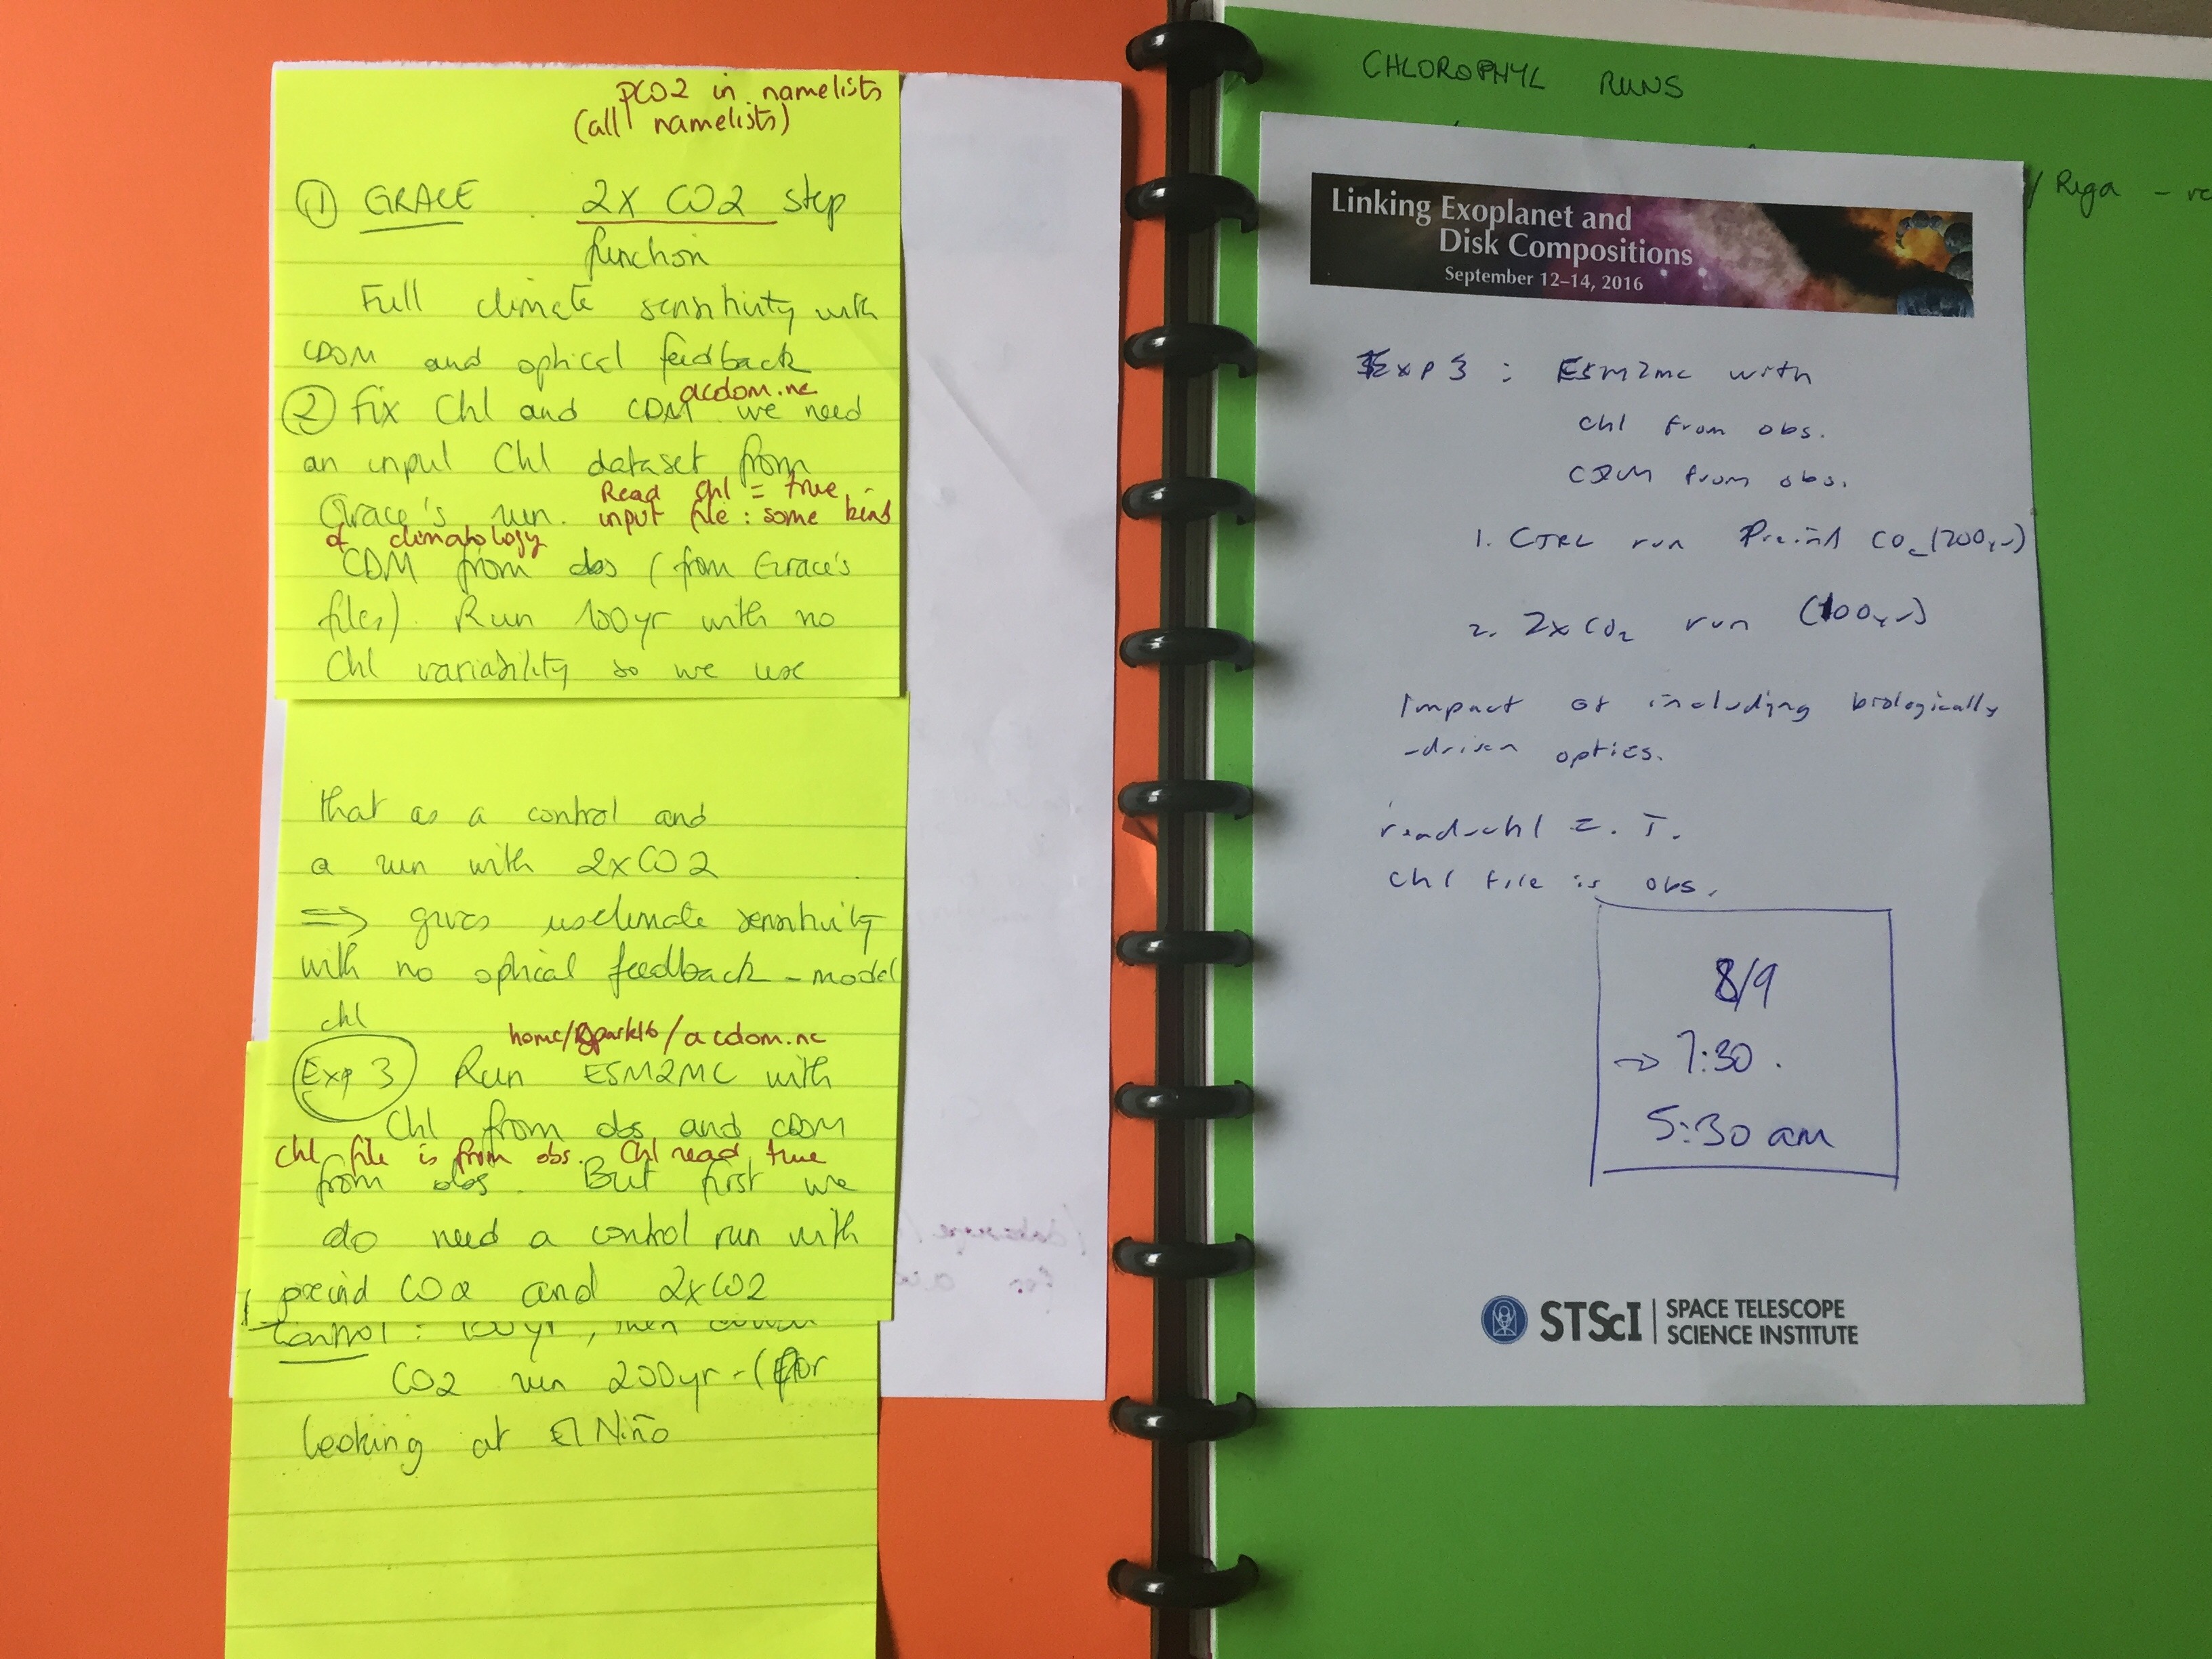 PCO2 in namelists
(all namelists)
① GRACE 2x CO2 step
function
Full climate sensitivity with
CDOM and optical feedback
acdom.nc
② Fix Chl and CDM we need
an input Chl dataset from
Read chl = true
Grace's run. input file: some kind
of climatology
CDM from obs (from Grace's
files). Run 100yr with no
Chl variability so we use
that as a control and
a run with 2xCO2
⇒ gives us climate sensitivity
with no optical feedback - model
chl
home/ /acdom.nc
Exp 3 Run ESM2MC with
Chl from obs and CDM
chl file is from obs. Chl read true
from obs. But first we
do need a control run with
preind CO2 and 2xCO2
Control: 100yr, then
CO2 run 200yr - (For
looking at El Niño
CHLOROPHYL RUNS
/ Riga -
Linking Exoplanet and
Disk Compositions
September 12–14, 2016
Exp 3 : ESM2mc with
chl from obs.
CDM from obs.
1. CTRL run Preind CO2 (200yr)
2. 2xCO2 run (100yr)
Impact of including biologically
-driven optics.
read-chl = .T.
chl file is obs.
8/9
→ 7:30.
5:30 am
STScI | SPACE TELESCOPE
SCIENCE INSTITUTE